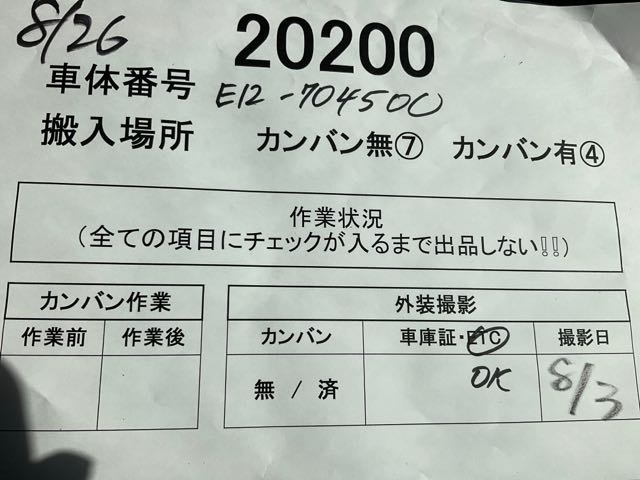 8/26
20200
車体番号 E12-704500
搬入場所 カンバン無⑦ カンバン有④
作業状況
(全ての項目にチェックが入るまで出品しない!!)
カンバン作業
作業前 作業後
外装撮影
カンバン 車庫証・ETC 撮影日
無 / 済 OK 8/3